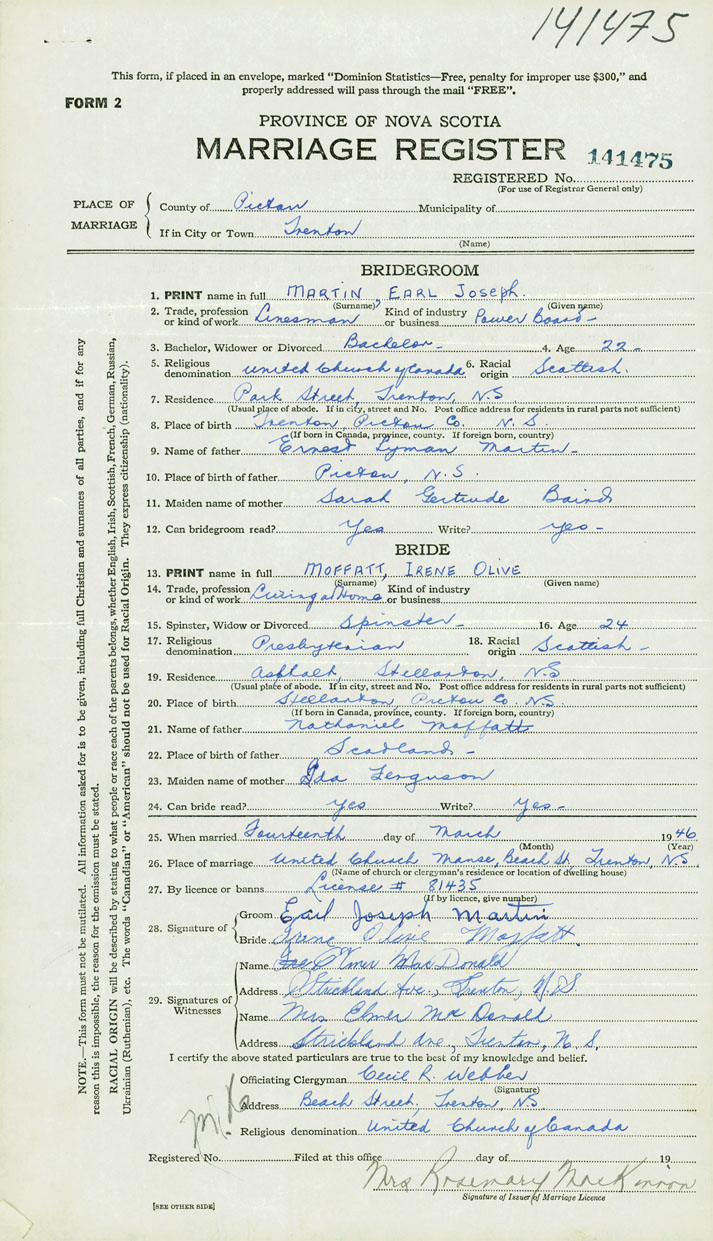 141475
This form, if placed in an envelope, marked “Dominion Statistics—Free, penalty for improper use $300,” and
properly addressed will pass through the mail “FREE”.
FORM 2
PROVINCE OF NOVA SCOTIA
MARRIAGE REGISTER 141475
REGISTERED No.
(For use of Registrar General only)
PLACE OF MARRIAGE
County of Pictou Municipality of
If in City or Town Trenton
(Name)
BRIDEGROOM
1. PRINT name in full MARTIN, EARL JOSEPH.
(Surname) (Given name)
2. Trade, profession or kind of work Linesman Kind of industry or business Power Board -
3. Bachelor, Widower or Divorced Bachelor - 4. Age 22 -
5. Religious denomination United Church of Canada 6. Racial origin Scottish.
7. Residence Park Street, Trenton, N.S
(Usual place of abode. If in city, street and No. Post office address for residents in rural parts not sufficient)
8. Place of birth Trenton, Pictou Co. N.S.
(If born in Canada, province, county. If foreign born, country)
9. Name of father Ernest Lyman Martin -
10. Place of birth of father Pictou, N.S.
11. Maiden name of mother Sarah Gertrude Baird
12. Can bridegroom read? Yes Write? yes -
BRIDE
13. PRINT name in full MOFFATT, IRENE OLIVE
(Surname) (Given name)
14. Trade, profession or kind of work Living at Home Kind of industry or business
15. Spinster, Widow or Divorced Spinster - 16. Age 24
17. Religious denomination Presbyterian 18. Racial origin Scottish -
19. Residence Asphalt, Stellarton, N.S
(Usual place of abode. If in city, street and No. Post office address for residents in rural parts not sufficient)
20. Place of birth Stellarton, Pictou Co. N.S.
(If born in Canada, province, county. If foreign born, country)
21. Name of father Nathaniel Moffatt
22. Place of birth of father Scotland -
23. Maiden name of mother Ida Ferguson
24. Can bride read? yes Write? Yes -
25. When married Fourteenth day of March 1946
(Month) (Year)
26. Place of marriage United Church Manse, Beach St, Trenton, N.S.
(Name of church or clergyman's residence or location of dwelling house)
27. By licence or banns License # 81435
(If by licence, give number)
28. Signature of
Groom Earl Joseph Martin
Bride Irene Olive Moffatt
29. Signatures of Witnesses
Name Elmer MacDonald
Address Strickland Ave., Trenton, N.S.
Name Mrs Elmer MacDonald
Address Strickland Ave, Trenton, N.S.
I certify the above stated particulars are true to the best of my knowledge and belief.
Officiating Clergyman Cecil R. Webber
(Signature)
Address Beach Street, Trenton, N.S
Religious denomination United Church of Canada
Registered No. Filed at this office day of 19
Mrs Rosemary MacKinnon
Signature of Issuer of Marriage Licence
[SEE OTHER SIDE]
NOTE.—This form must not be mutilated. All information asked for is to be given, including full Christian and surnames of all parties, and if for any
reason this is impossible, the reason for the omission must be stated.
RACIAL ORIGIN will be described by stating to what people or race each of the parents belongs, whether English, Irish, Scottish, French, German, Russian,
Ukrainian (Ruthenian), etc. The words “Canadian” or “American” should not be used for Racial Origin. They express citizenship (nationality).